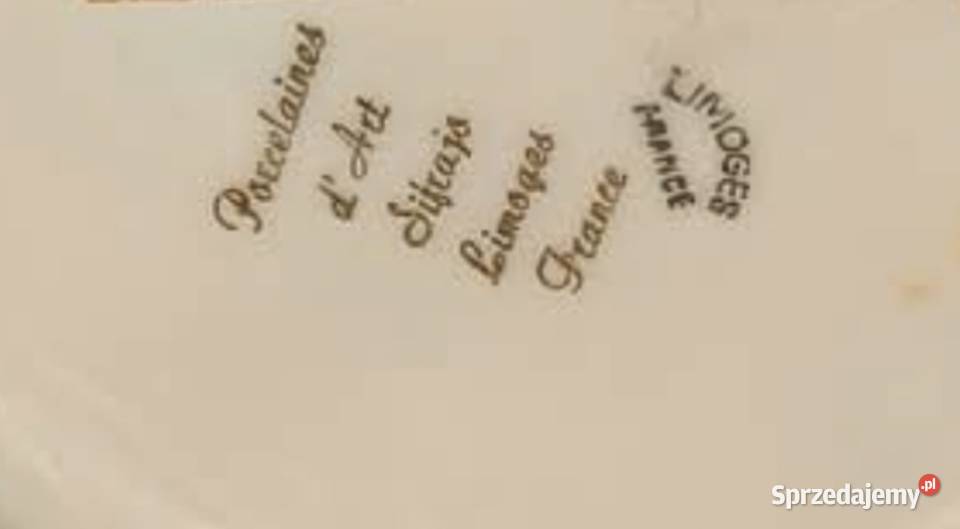 Porcelaines
d'Art
Sifrajs
Limoges
France
LIMOGES
FRANCE
Sprzedajemy.pl